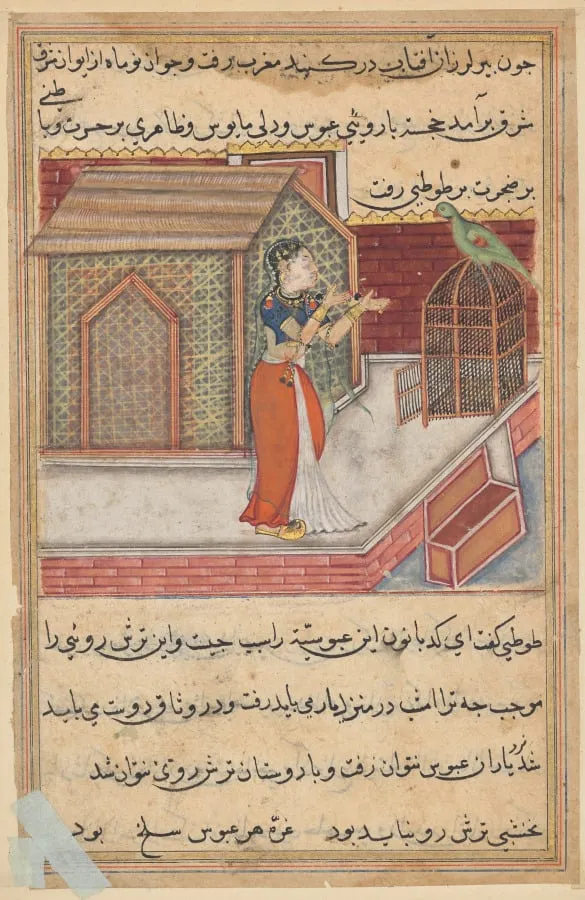 جون بیر لرزان آفتاب در کنبد مغرب رفت و جوان نو ماه از ایوان شرق
شرق برآمد خجسته با روئی عبوس و دلی مایوس و ظاهری بر حسرت و با طنی
بر ضجرت بر طوطی رفت
طوطی کفت ای کدبانو این عبوسیّة را سبب جیست و این ترش روئی را
موجب جه ترا امشب در منزل یار می باید رفت و در وثاق دوست می باید
شد نزد یاران عبوس نتوان رفت و با دوستان ترش روی نتوان شد
نخشبی ترش رو نباید بود غرّه هر عبوس سلخ بود